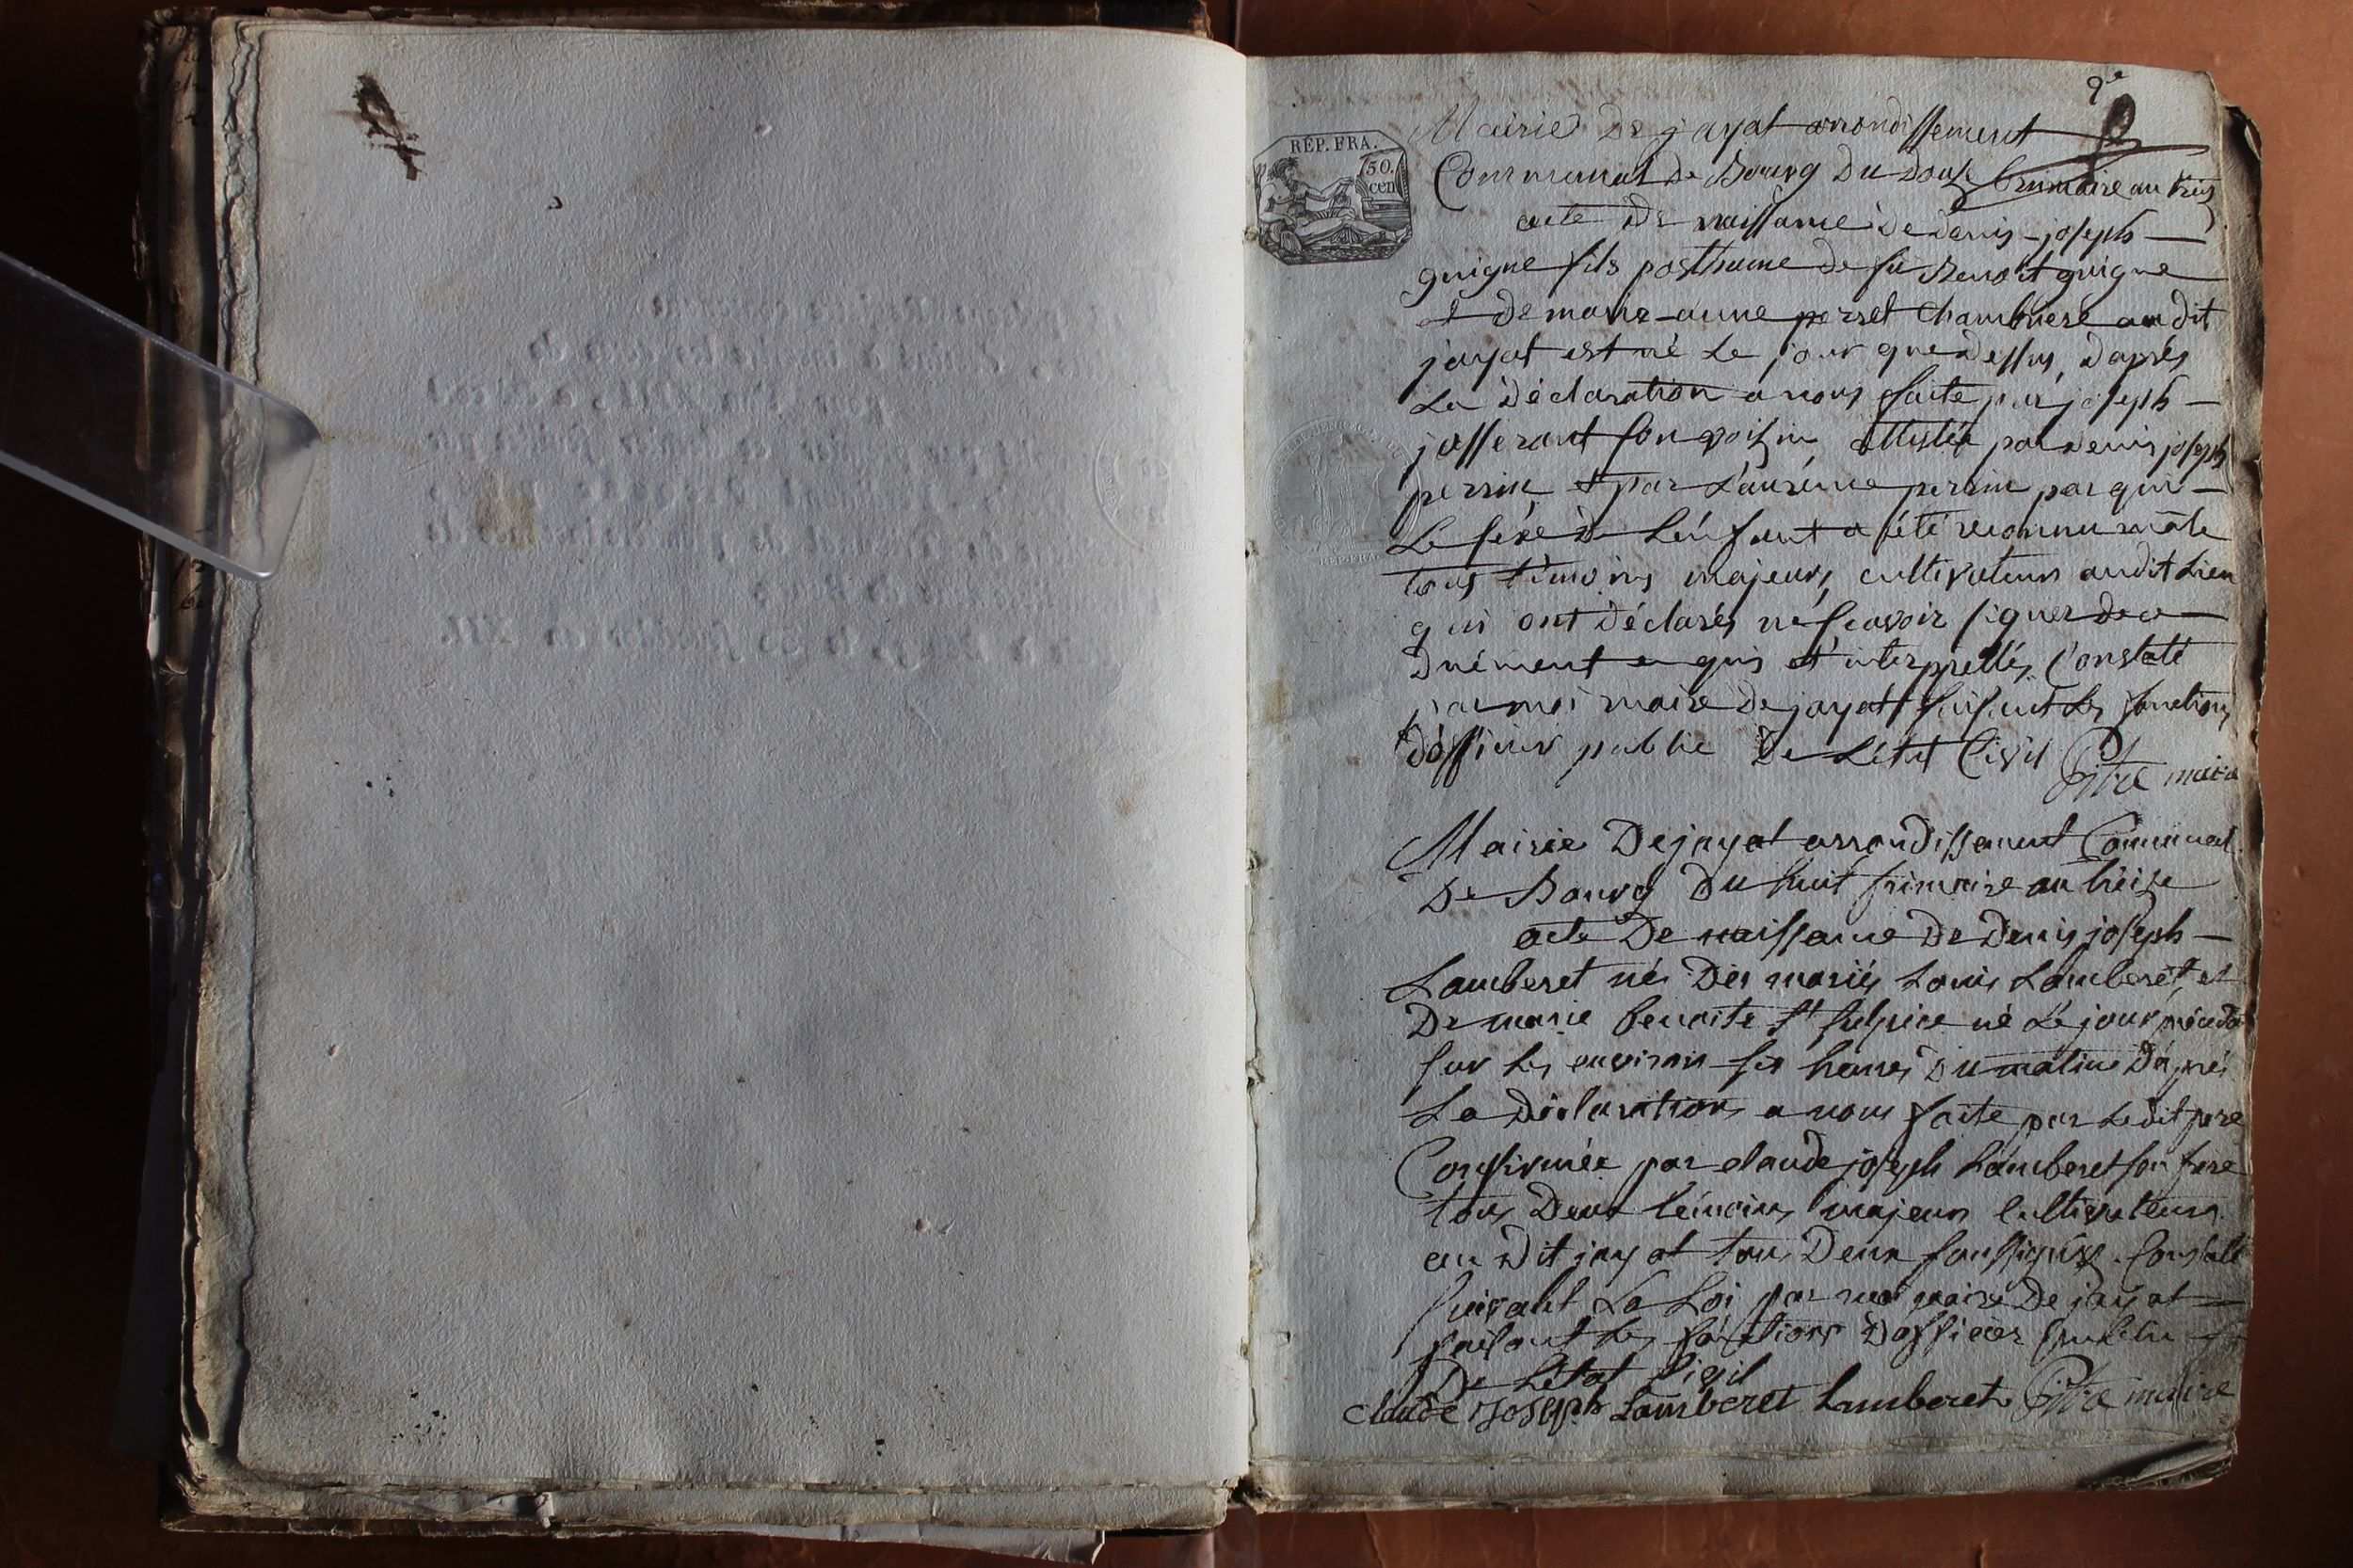 2e
RÉP. FRA.
50.
cen
Mairie De jayat arrondissement
Communal de Bourg Du Douze brumaire an treize
acte De naissance De denis-joseph
guigne fils posthume de feu Benoit guigne
et De marie-anne perret Chambriere au dit
jayat est né Le jour que Dessus, Daprés
La Déclaration a nous faite par joseph
josserant son voisin attestée par denis joseph
perrin et par Laurence perrin par qui
Le séxe De Lénfant a été reconnu mâle
tous témoins majeurs, cultivateurs audit Lieu
qui ont Déclarés ne scavoir signer De ce
Duëment enquis et interppellés, Constaté
par moi maire De jayat faisant Les fonctions
Dofficier public De Létat Civil Pitre maire
Mairie De jayat arrondissement Communal
De Bourg Du huit frimaire an treize
acte De naissance De Denis joseph
Lamberet né Des mariés Louis Lamberet, et
De marie benoite St sulpice né Le jour
sur Les environ six heures Du matin Daprés
La Déclaration a nous faite par Ledit pere
Confirmée par claude joseph Lamberet son frere
tous Deux témoins majeurs Cultivateurs
au Dit jayat tous Deux soussignés. Constaté
suivant La Loi par moi maire De jayat
faisant Les fonctions Dofficier public
De Létat Civil
claude joseph Lamberet Lamberet Pitre maire